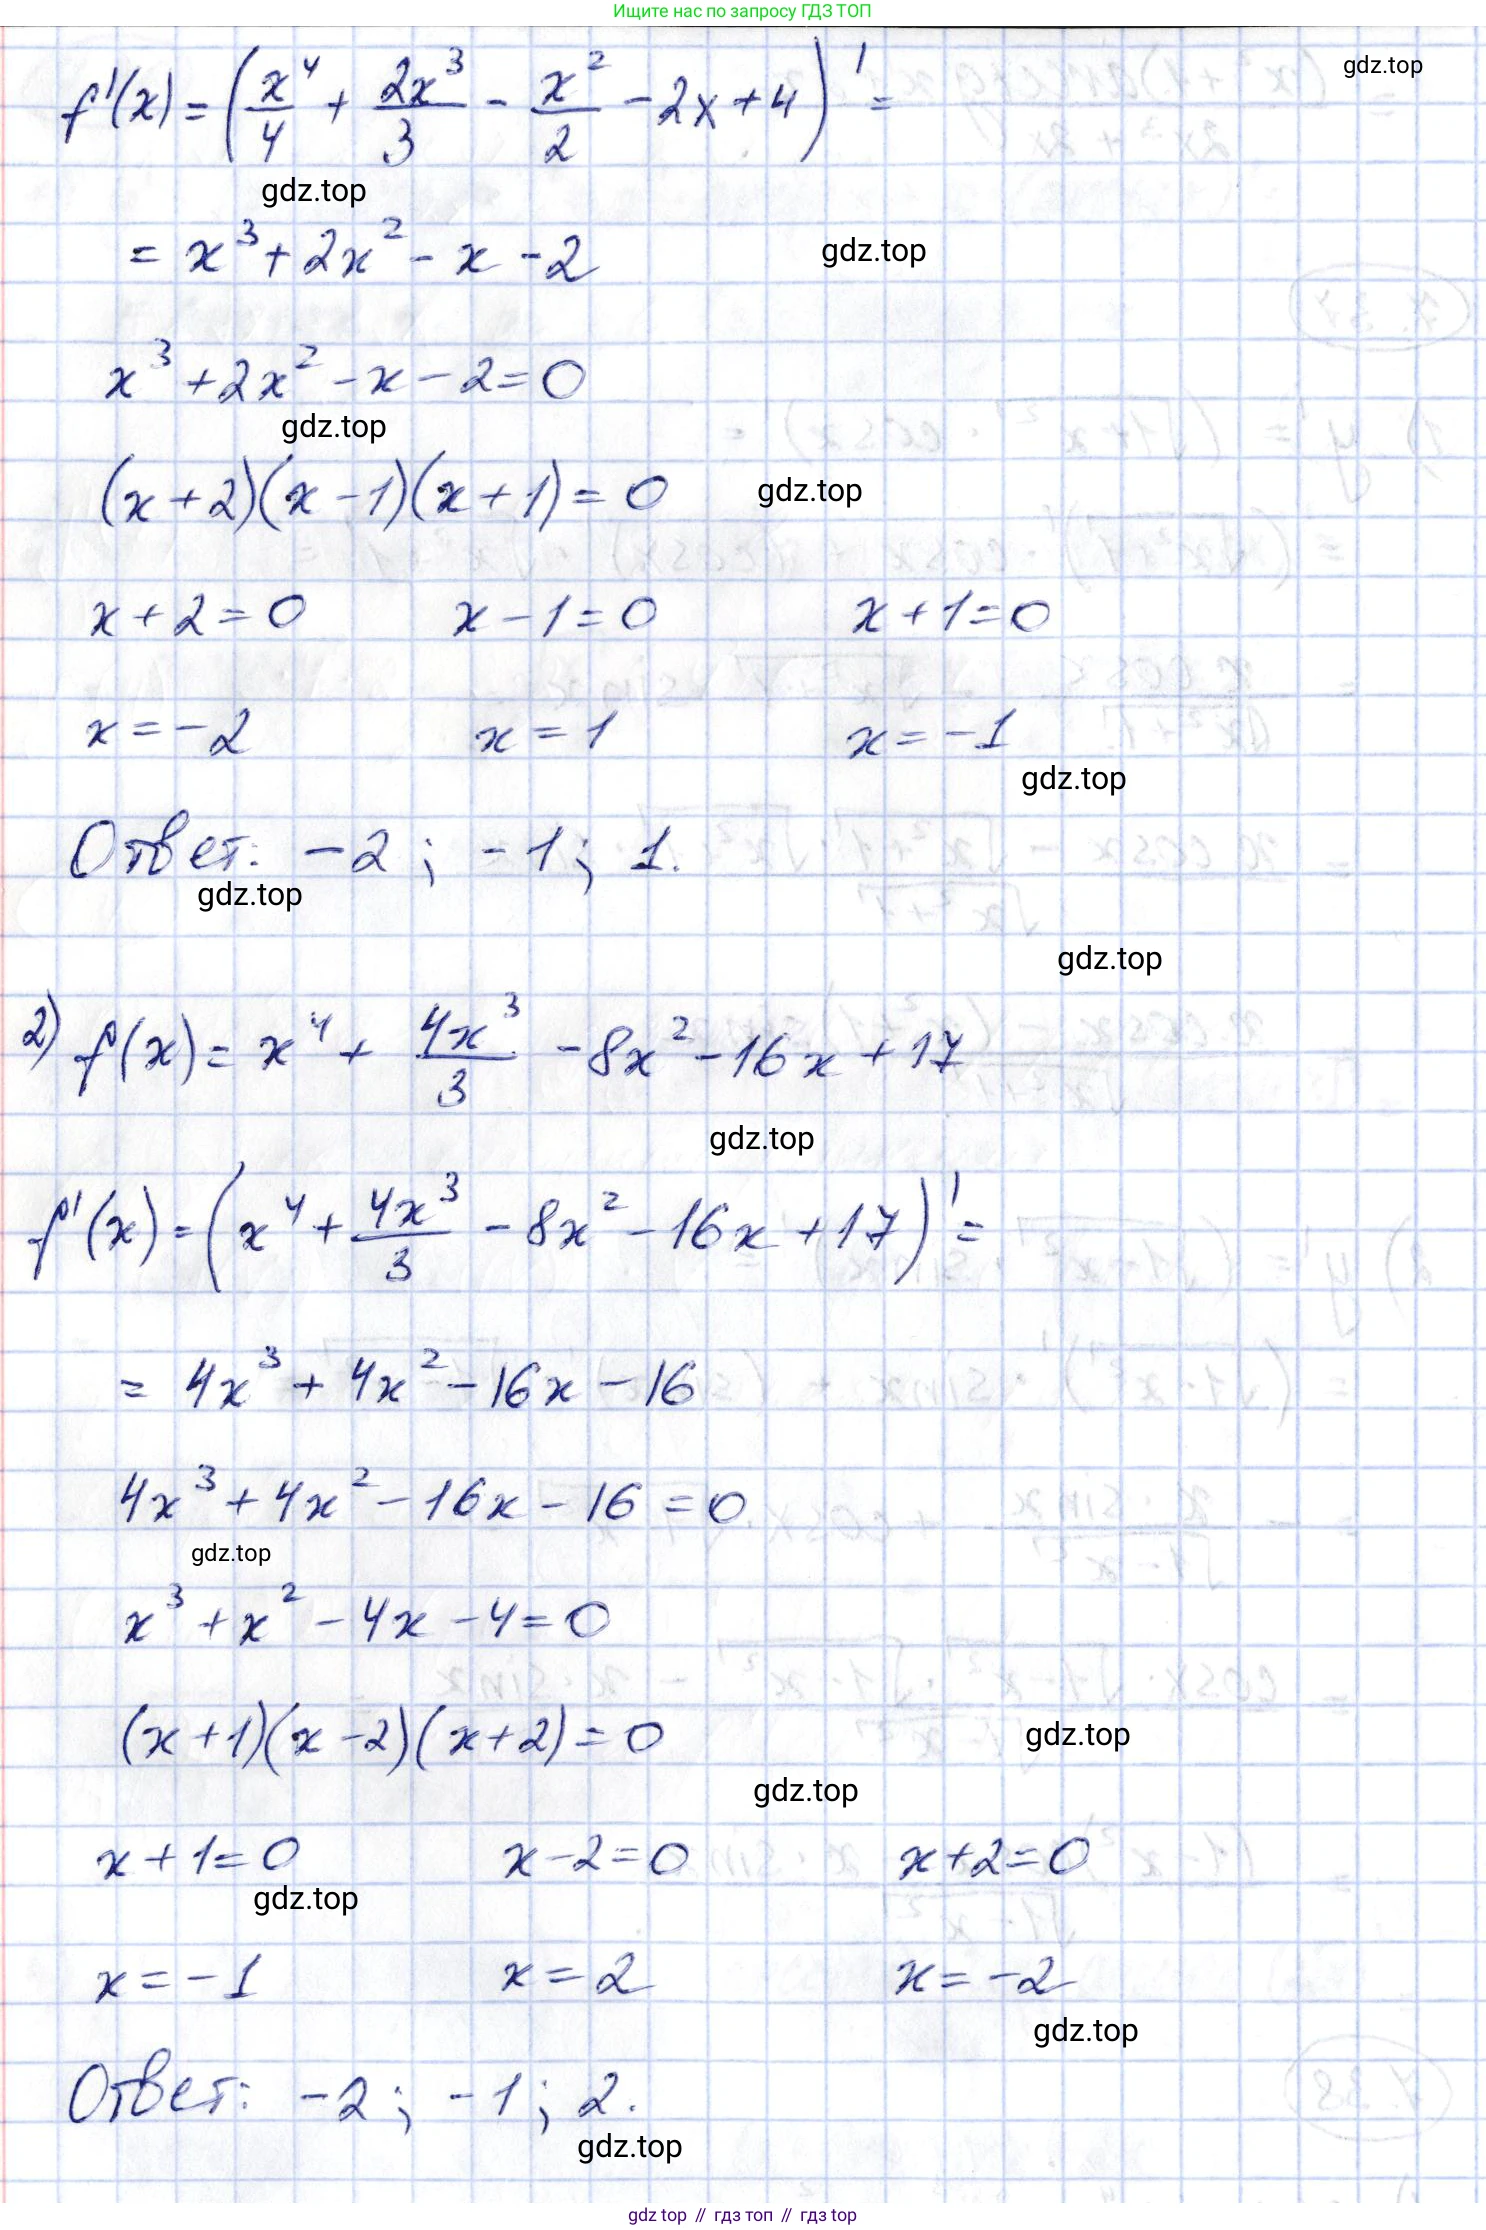 Ищите нас по запросу ГДЗ ТОП
f'(x) = (x⁴/4 + 2x³/3 - x²/2 - 2x + 4)' =
gdz.top
gdz.top
= x³ + 2x² - x - 2
gdz.top
x³ + 2x² - x - 2 = 0
gdz.top
(x + 2)(x - 1)(x + 1) = 0
gdz.top
x + 2 = 0 x - 1 = 0 x + 1 = 0
x = -2 x = 1 x = -1
gdz.top
Ответ: -2; -1; 1.
gdz.top
gdz.top
2) f(x) = x⁴ + 4x³/3 - 8x² - 16x + 17
gdz.top
f'(x) = (x⁴ + 4x³/3 - 8x² - 16x + 17)' =
= 4x³ + 4x² - 16x - 16
4x³ + 4x² - 16x - 16 = 0
gdz.top
x³ + x² - 4x - 4 = 0
(x + 1)(x - 2)(x + 2) = 0
gdz.top
gdz.top
x + 1 = 0 x - 2 = 0 x + 2 = 0
gdz.top
x = -1 x = 2 x = -2
gdz.top
Ответ: -2; -1; 2.
gdz.top
gdz.top // гдз топ // гдз top